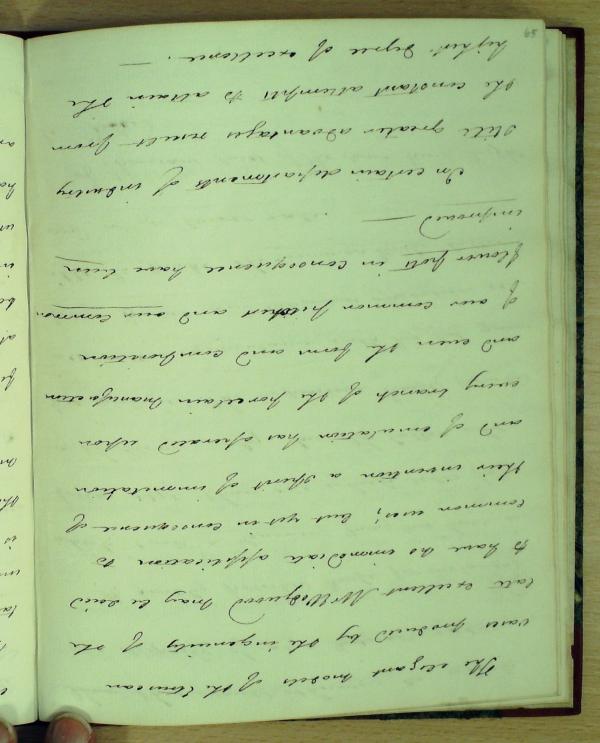 The elegant models of the Etruscan
vases produced by the ingenuity of the
late excellent Mr Wedgwood may be said
to have no immediate application to
common uses; but yet in consequence of
their invention a spirit of immitation
and of emulation has operated upon
every branch of the porcelain
and even the form and configuration
of our common pitchers and our common
flower pots in consequence have been
improved —
In certain departments of industry
still greater advantages result from
the constant attempts to attain the
highest degree of excellence. —
65